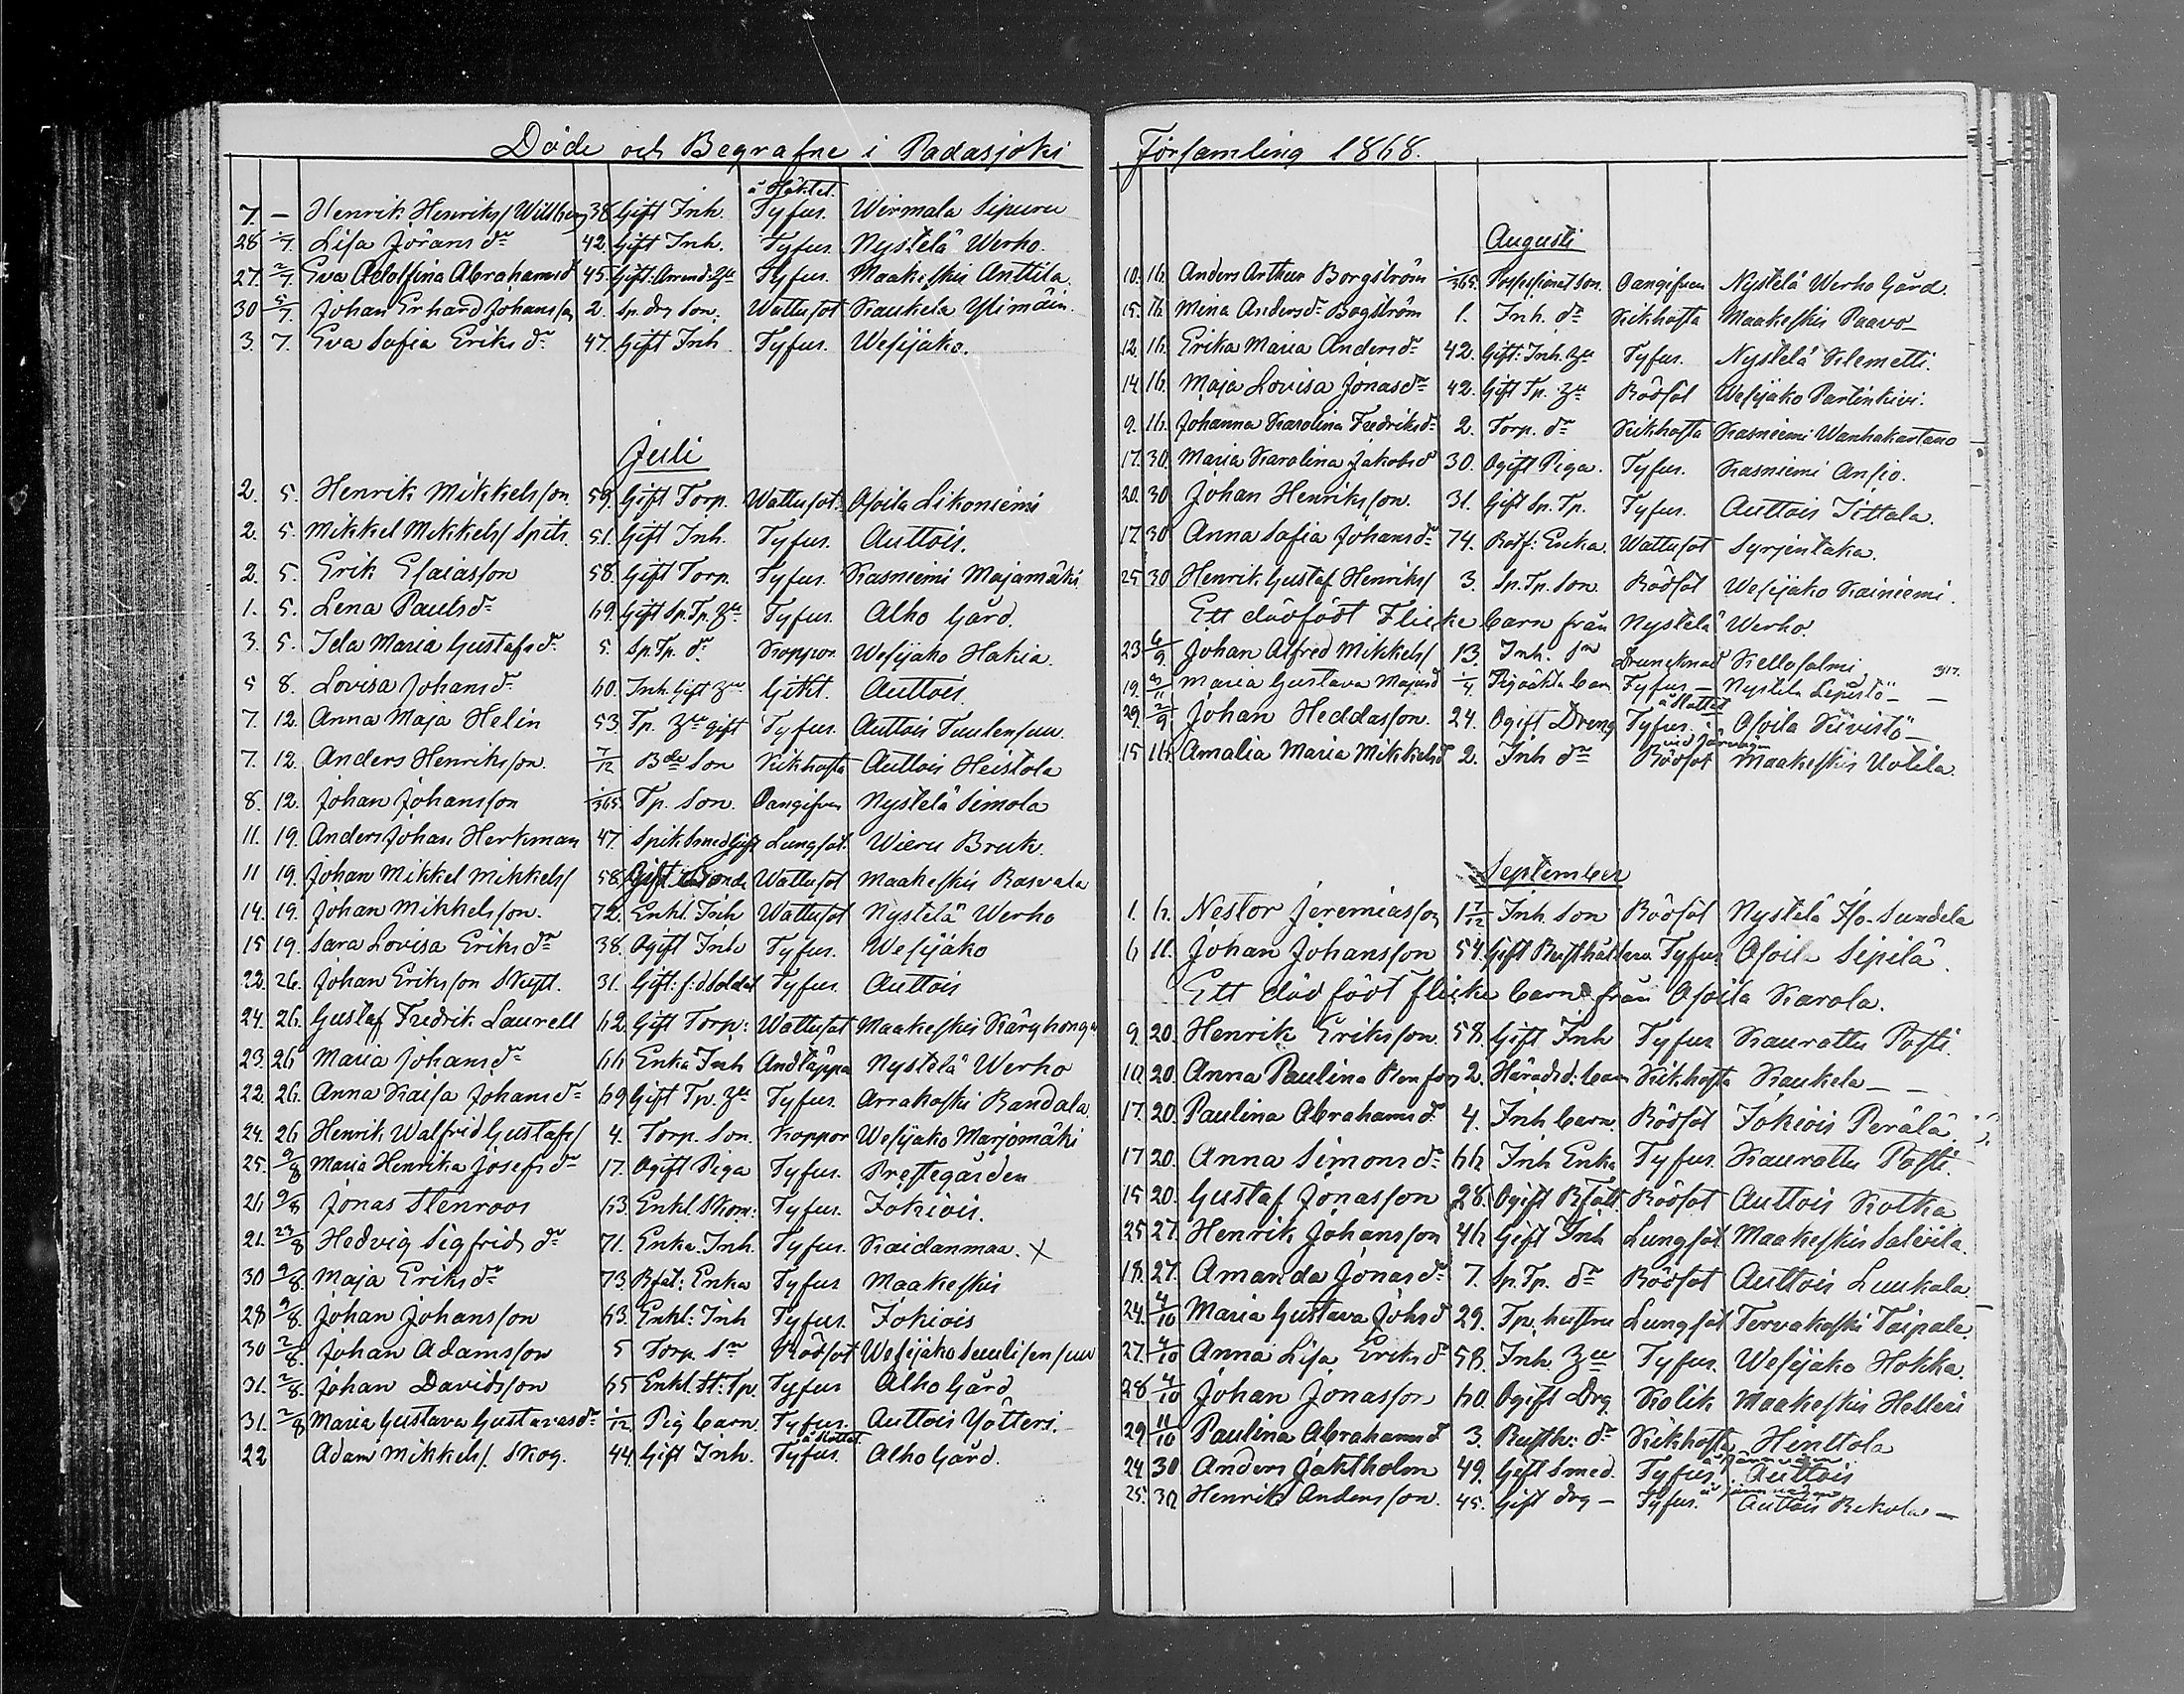 Döde och Begrafne i Padasjoki
å Häktet.
7. – Henrik Henriks/ Willberg 38. Gift Inh. Tyfus. Wirmala Sipuru
28 1/7. Lisa Jörans dr 42. Gift Inh. Tyfus. Nystelä Werho.
27. 2/7. Eva Adolffina Abrahamsd 45. Gift: Arrend: Tyfus. Maakeskis Anttila.
30 5/7. Johan Erhard Johansson 2. Sp. drg Son. Wattusot Kaukela Ylimäin.
3. 7. Eva Sofia Eriks dr 47. Gift Inh Tyfus. Wesijako.
Juli
2. 5. Henrik Mikkelsson 59. Gift Torp. Wattusot. Osoila Likoniemi
2. 5. Mikkel Mikkels/ Spets. 51. Gift Inh. Tyfus. Auttois.
2. 5. Erik Esaiasson 58. Gift Torp. Tyfus. Kasniemi Majamäki
1. 5. Lena Paulsdr 69. Gift Sp. Tp. Tyfus. Alho Gård.
3. 5. Ida Maria Gustafsdr 5. Sp. Tp. dr Koppor. Wesijako Hakia.
5 8. Lovisa Johansdr 60. Inh. Gift Gikt. Auttois.
7. 12. Anna Maja Helin 53. Tp. gift Tyfus. Auttois Tuulensuu.
7. 12. Anders Henriksson. 7/12 Bde Son Kikhosta Auttois Heistola
8. 12. Johan Johansson 1/365. Tp. Son. Oangifven Nystelä Simola
11. 19. Anders Johan Herkman 47. Spiksmed Gift Lungsot. Wieru Bruk.
11 19. Johan Mikkel Mikkels/ 58. Gift Bonde Wattusot Maakeskis Rasvala
14. 19. Johan Mikkelsson. 72. Enkl. Inh Wattusot Nystelä Werho
15 19. Sara Lovisa Eriksdr 38. Ogift Inh Tyfus. Wesijako
22. 26. Johan Eriksson Skytt. 31. Gift: f: d. Soldat Tyfus. Auttois
24. 26. Gustaf Fredrik Laurell 62. Gift Torp: Wattusot Maakeskis
23. 26 Maria Johansdr 66 Enka Inh Andtäppa Nystelä Werho
22. 26. Anna Kaisa Johansdr 69 Gift Tp. Tyfus. Arrakoski Randala.
24. 26 Henrik Walfrid Gustafs/ 4. Torp. Son. Koppor Wesijako Marjomäki
25. 9/8 Maria Henrika Josefsdr 17. Ogift Piga Tyfus. Prestegården
26 9/8 Jonas Stenroos 63. Enkl. Skom: Tyfus. Jokiois.
21. 23/8 Hedvig Sigfrids dr 71. Enka. Inh. Tyfus. Kaidanmaa. X
30 9/8. Maja Eriksdr 73. Rfat: Enka Tyfus Maakeskis
28 9/8. Johan Johansson 63. Enkl: Inh Tyfus. Jokiois
30 2/8. Johan Adamsson 5 Torp. Sn Rödsot Wesijako
31. 2/8. Johan Davidsson 65 Enkl. St: Tp. Tyfus Alho Gård
31. 2/8 Maria Gustava Gustavasdr 1/12 Pig barn. Tyfus. Auttois Yötteri.
å Slottet
22 Adam Mikkels/. Skog. 44. Gift Inh. Tyfus. Alho Gård.
Församling 1868.
Augusti
10. 16. Anders Arthur Borgström 1/365. Possessionat Son. Oangifven Nystelä Werho Gård.
15. 16. Mina Andersdr Bogström 1. Inh. dr Kikhosta Maakeskis Paavo–
12. 16. Erika Maria Andersdr 42. Gift: Inh. Tyfus. Nystelä Klemetti.
14. 16. Maja Lovisa Jonasdr 42. Gift Tp. Rödsot Wesijako Partinkivi.
9. 16. Johanna Karolina Fredriksdr 2. Torp. dr Kikhosta Kasniemi Wanhakartano
17. 30. Maria Karolina Jakobsd 30. Ogift Piga. Tyfus. Kasniemi Ansio.
20. 30 Johan Henriksson. 31. Gift Sp. Tp. Tyfus. Auttois Iittala.
17. 30 Anna Sofia Johansdr 74. Rotf: Enka. Wattusot Syrjentaka.
25 30 Henrik Gustaf Henriks/ 3. Sp. Tp. Son. Rödsot Wesijako Kainiemi.
Ett dödfödt Flicke barn från Nystelä Werho.
23 6/9. Johan Alfred Mikkels/ 13. Inh. Sn Drunknad Kellosalmi
19. Maria Gustava Majasd 1/4. barn Tyfus – Nystelä Lepistö – 317.
å Slottet
29. 2/9. Johan Heddasson. 24. Ogift Dreng Tyfus. Osoila Kivistö –
15 16 Amalia Maria Mikkelsd 2. Inh dr Rödsot Maakeskis Uotila.
September
1. 6. Nestor Jeremiasson 1 7/12 Inh. Son Rödsot Nystelä Iso-Sundela
6 11. Johan Johansson 54. Gift Rusthållare Tyfus Osoila Sipilä.
Ett dödfödt flicke barn från Osoila Karola.
9. 20. Henrik Eriksson. 58. Gift Inh Tyfus Kaurattu Posti.
10. 20. Anna Paulina 2. Häradsd: barn Kikhosta Kaukela – –
17. 20. Paulina Abrahamsd. 4. Inh barn Rödsot Jokiois Perälä.
17 20. Anna Simonsdr 66. Inh Enka Tyfus. Kaurattu Posti.
15 20. Gustaf Jonasson 28. Ogift Rödsot Auttois Kotka
25 27. Henrik Johansson 46. Gift Inh Lungsot Maakeskis Salévila.
18. 27. Amanda Jonasdr 7. Sp. Tp. dr Rödsot Auttois Luukala.
24. 4/10 Maria Gustava Johsd 29. Tp. hustru Lungsot Torvakoski Taipale.
27. 4/10 Anna Lisa Eriksd 58. Inh. Tyfus. Wesijako Hokka.
28 4/10 Johan Jonasson 60. Ogift Drg. Kolik Maakeskis Helleri
29 11/10 Paulina Abrahamsd 3. Rusth: dr Kikhosta Hinttola
å Jernvägen
24. 30 Anders Jaktholm 49. Gift Smed. Tyfus. Auttois
25. 30 Henrik Andersson. 45. Gift drg – Tyfus. Auttois Rekola –